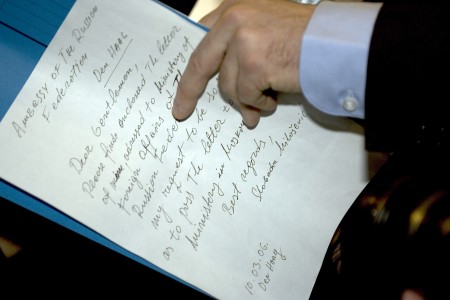 Ambassy of The Russian
Federation
Den Haag
Dear Gentleman,
Please find enclosed The letter
of adressed to Ministry of
Foreign affairs of The
Russian Feder
my request to be so
as to pass The letter to
Ministry in Moscow
Best regards,
Slobodan Milošević
10.03.06.
Den Haag